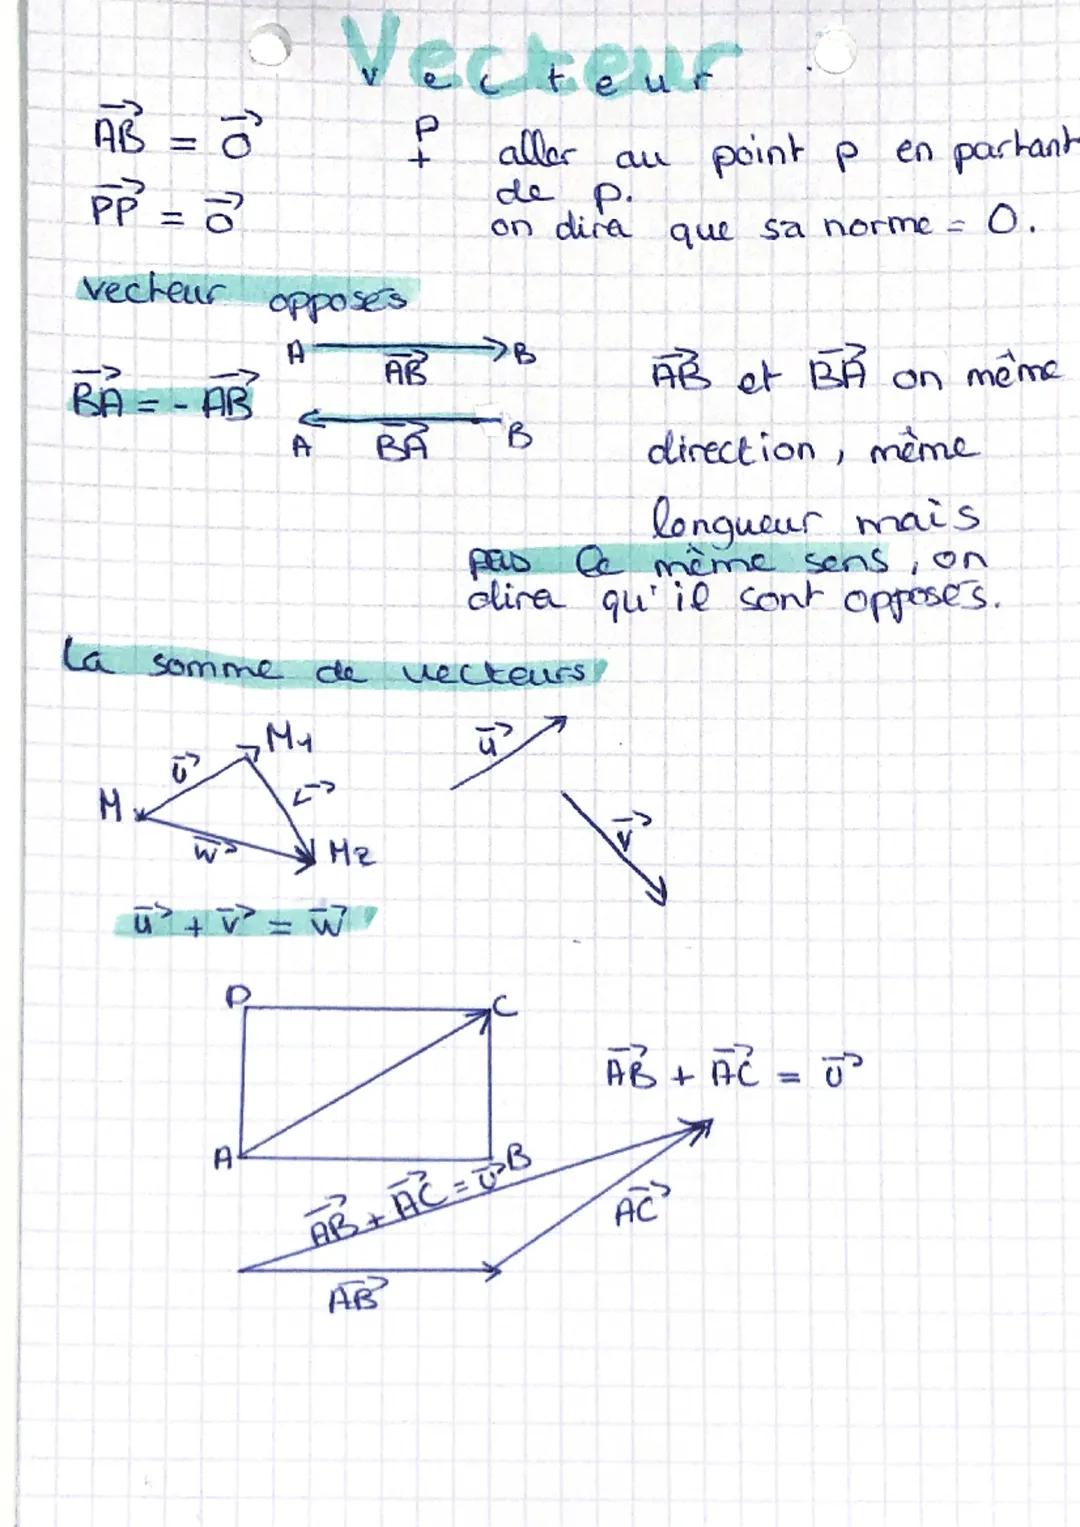 Vecteur
Vecteur
AB⃗ = 0⃗
P
+
aller au point p en partant
de p.
PP⃗ = 0⃗
on dira que sa norme = 0.
vecteur opposés
A B
AB⃗
BA⃗ = - AB⃗
A BA⃗ B
AB⃗ et BA⃗ on même
direction, même
longueur mais
pas le même sens, on
dira qu'il sont opposés.
La somme de vecteurs
M1
u⃗
v⃗
M
w⃗
M2
u⃗
v⃗
u⃗ + v⃗ = w⃗
D C
A B
AB⃗ + AC⃗ = u⃗
AB⃗ + AC⃗ = u⃗
AC⃗
AB⃗